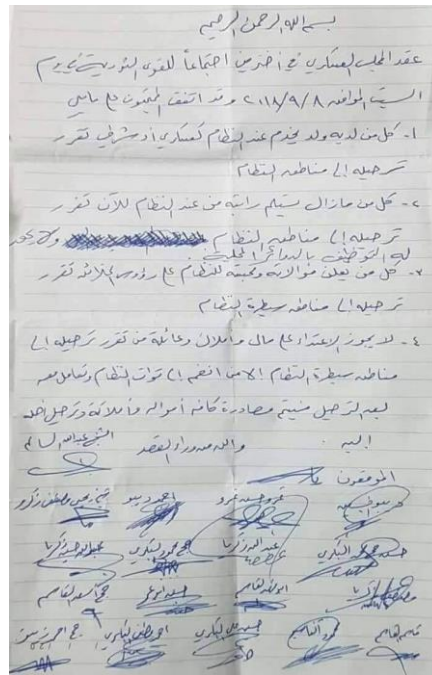 بسم الله الرحمن الرحيم
عقد المجلس العسكري في اخترين اجتماعاً للقوى الثورية في يوم
السبت الموافق ٨/٩/٢٠١٨ وقد اتفق المجتمعون على مايلي
١- كل من لديه ولد يخدم عند النظام كعسكري أو شرطي تقرر
ترحيله إلى مناطق النظام
٢- كل من مازال يستلم راتبه من عند النظام للآن تقرر
ترحيله إلى مناطق النظام ولا يجوز
له التوظيف بالدوائر المحلية.
٣- كل من يعلن موالاته ومحبته للنظام على رؤوس الخلائق تقرر
ترحيله إلى مناطق سيطرة النظام
٤- لا يجوز الاعتداء على مال وأملاك وعائلة من تقرر ترحيله إلى
مناطق سيطرة النظام إلا من انضم إلى قوات النظام وتعامل معه
بعد الترحيل فسيتم مصادرة كافة أمواله وأملاكه وترحيل أهله
إليه. والله من وراء القصد الشيخ عبدالله
الموقعون
احمد ديبو
محمود البكري
حسن البكري عبدالله زكريا حج محمود البكري
ابو عمر
قاسم القاسم محمود القاسم حسن علي البكري مصطفى البكري